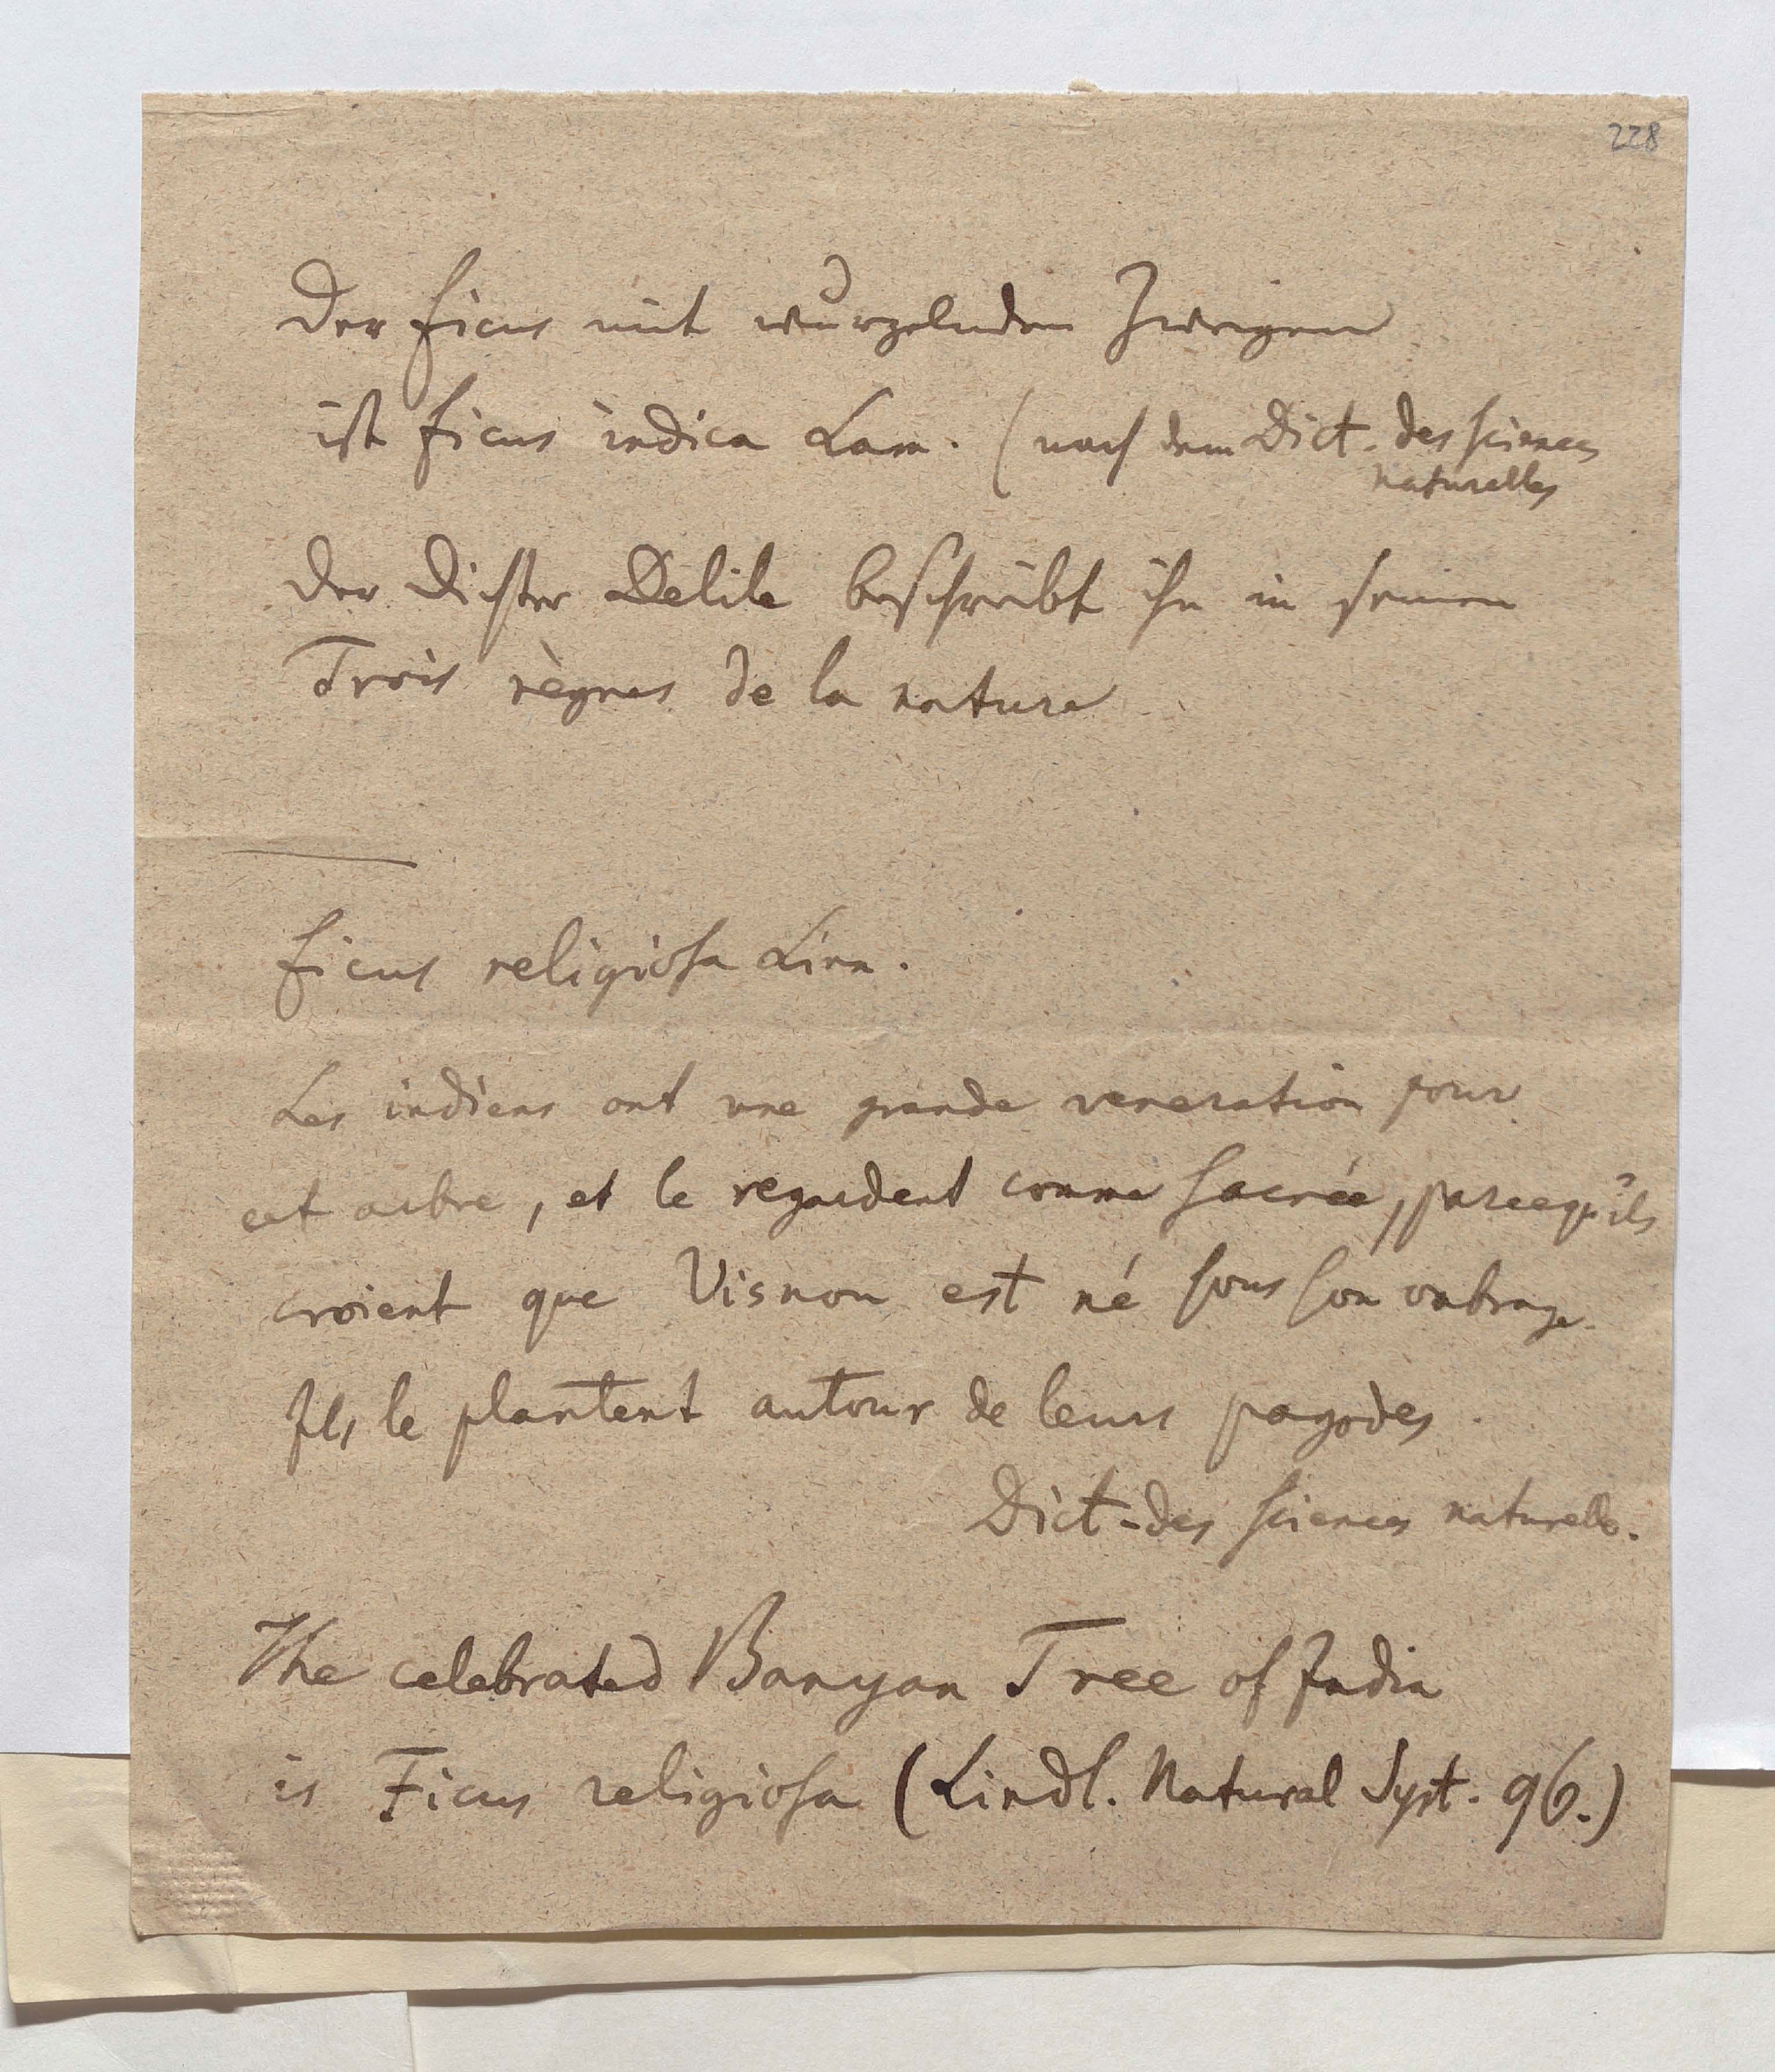 228
Der ficus mit wurzelnden Zweigen
ist ficus indica Lam. (nach dem Dict. des sciences
naturelles
Der Dichter Delile beschreibt ihn in seinen
Trois règnes de la nature
ficus religiosa Linn.
Les indiens ont une grande veneration pour
cet arbre, et le regardent comme sacrée, parcequ'ils
croient que Visnou est né sous son ombrage.
Ils le plantent autour de leurs pagodes.
Dict. des sciences naturelles.
The celebrated Banyan Tree of India
is Ficus religiosa (Lindl. Natural Syst. 96.)